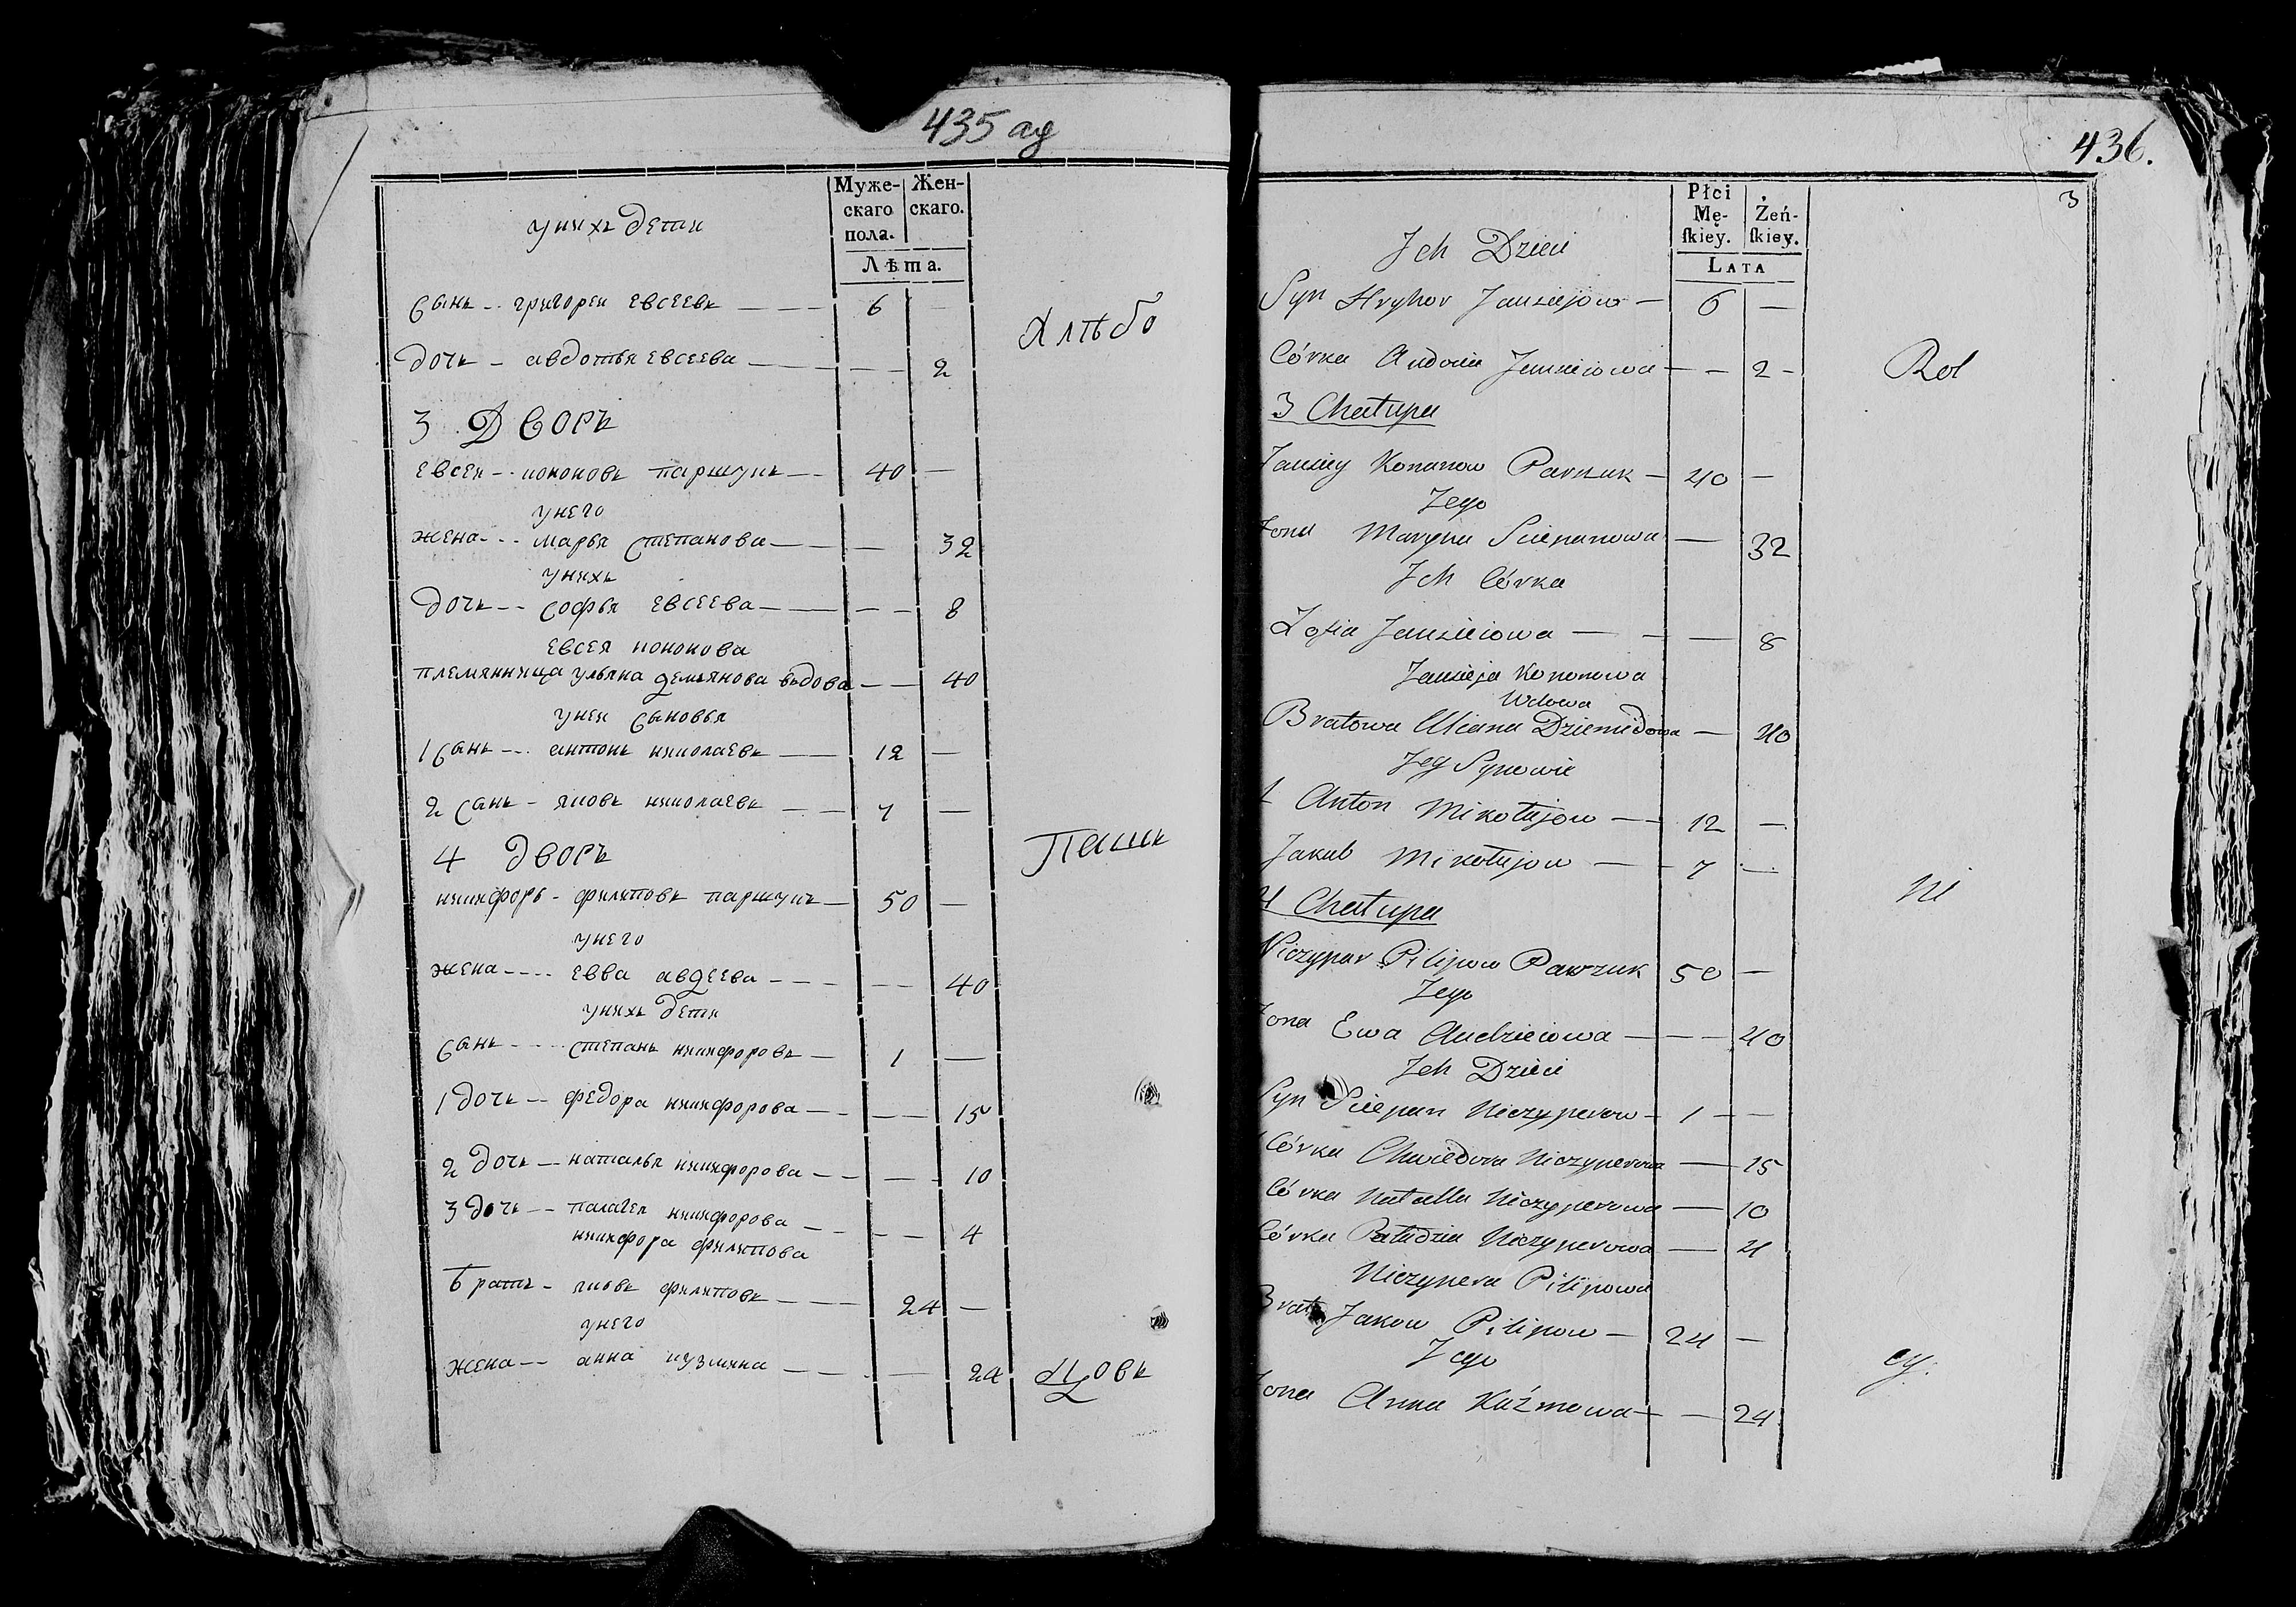 435 ад
Муже-
скаго
пола.
Жен-
скаго.
Лѣта.
унихъ дети
Сынъ -- григореи евсеевъ — 6 —
дочь - авдотья евсеева — — 2
Хлѣбо
3 Дворъ
евсеи -- кононовъ паршукъ — 40 —
унего
жена -- марья степанова — — 32
унихъ
дочь -- софья евсеева — — 8
евсея кононова
племянница ульяна демьянова вдова — — 40
унеи сыновья
1 сынъ -- антонъ николаевъ — 12 —
2 сынъ - яковъ николаевъ — 7 —
4 дворъ
Пашь
никифоръ - филиповъ паршукъ — 50 —
унего
жена ---- евва авдеева — — 40
унихъ дети
сынъ ---- степанъ никифоровъ — 1 —
1 дочь -- федора никифорова — — 15
2 дочь -- наталья никифорова — — 10
3 дочь -- палагея никифорова — — 4
никифора филипова
братъ - яковъ филиповъ — 24 —
унего
жена -- анна кузмина — — 24
цовъ
436.
3
Płci
Mę-
skiey.
Żeń-
skiey.
Lata
Jch Dzieci
Syn Hryhor Jauziejow — 6 —
Córka Audocia Jauzieiowa — — 2 -
Rol
3 Chałupa
Jauziey Kononow Parszuk — 40 —
Jego
Żona Maryna Sciepanowa — 32
Jch Córka
Zofia Jauzieiowa — — 8
Jauzieja Kononowa
Wdowa
Bratowa Uliana Dziemidowa — 40
Jey Synowie
1 Anton Mikołajow — 12 —
Jakub Mikołajow — 7 —
4 Chałupa
ni
Niczypar Pilipow Parszuk 50 —
Jego
Żona Ewa Audzieiowa — — 40
Jch Dzieci
Syn Sciepan Niczyperow - 1 —
Córka Chwiedora Niczyperowa — 15
Córka Natalla Niczyperowa — 10
Córka Pałudzia Niczyperowa — 4
Niczypera Pilipowa
Brat Jakow Pilipow — 24 —
Jego
Żona Anna Kuźmowa — — 24
cy.